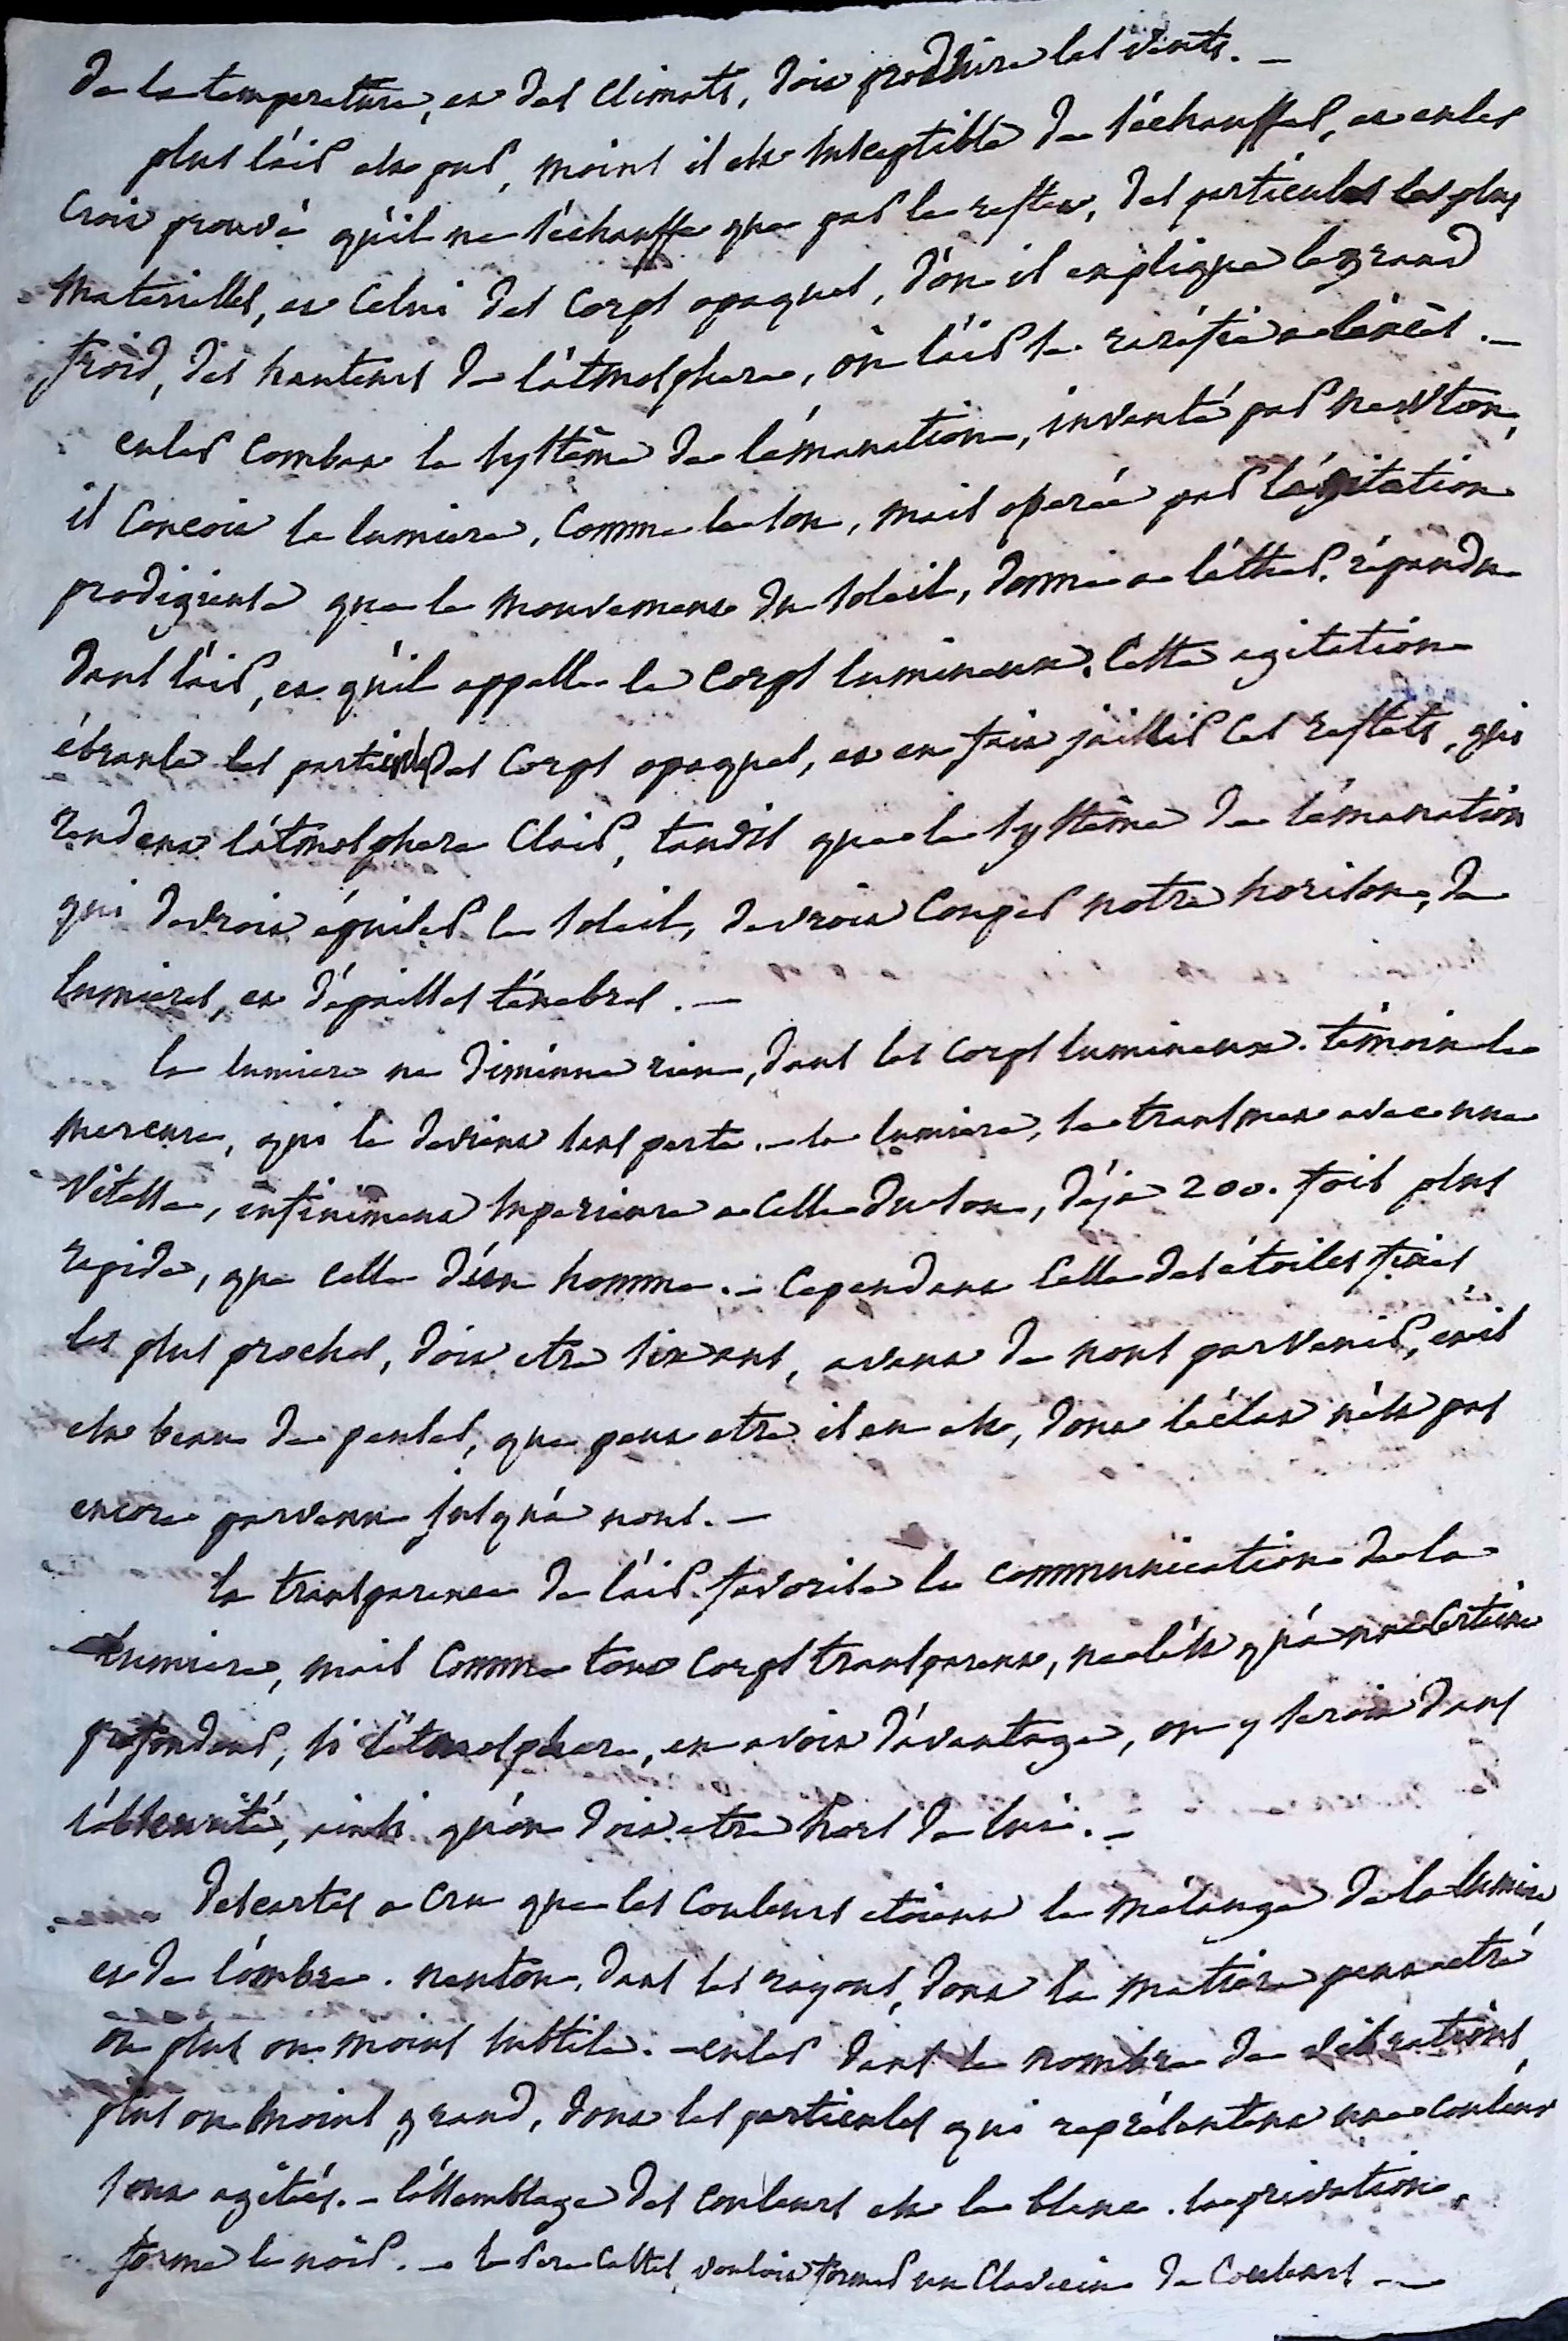 de la temperature, et des Climats, doit produire les vents. —
plus l'air est pur, moins il est susceptible de s'échauffer, et euler
Croit prouvé qu'il ne s'échauffe que par le reflet, des particules les plus
materielles, et Celui des Corps opaques, d'ou il explique le grand
froid, des hauteurs de l'atmosphere, où l'air se rarefie a l'excès. —
euler Combat le systême de l'émanation, inventé par newton,
il Concoit la lumiere, Comme le son, mais operée par l'agitation
prodigieuse que le mouvement du soleil, donne a l'éther, répandu
dans l'air, et qu'il appelle le Corps lumineux. Cette agitation
ébranle les particules des Corps opaques, et en fait jaillir Ces reflets, qui
rendent l'atmosphere Clair, tandis que le systême de l'émanation
qui devroit épuiser le soleil, devroit Couper notre horison, de
lumieres, et d'épaisses ténebres. —
la lumiere ne diminue rien, dans les Corps lumineux. témoin le
mercure, qui le devient sans perte. — la lumiere, se transmet avec une
Vitesse, infiniment superieure a Celle du son, déja 200. fois plus
rapide, que Celle d'un homme. — Cependant Celle des étoiles fixes
les plus proches, doit etre six ans, avant de nous parvenir, et il
est beau de penser, que peut etre il en est, dont l'éclat n'est pas
encore parvenu jusqu'á nous. —
la transparence de l'air favorise la communication de la
lumiere, mais Comme tout Corps transparent, ne l'est qu'á une Certaine
profondeur, si l'atmosphere, en avoit d'avantage, on y seroit dans
l'obscurité, ainsi qu'on doit etre hors de lui. —
descartes a Cru que les Couleurs etoient le mélange de la lumiere
et de l'ombre. neuton, dans les rayons, dont la matiere peut etre
ou plus ou moins subtile. — euler dans le nombre de vibrations,
plus ou moins grand, dont les particules qui représentent une Couleur
sont agitées. — l'assemblage des Couleurs est le blanc. la privation,
forme le noir. — le Pere Castel, vouloit former un Clavecin de Couleurs —